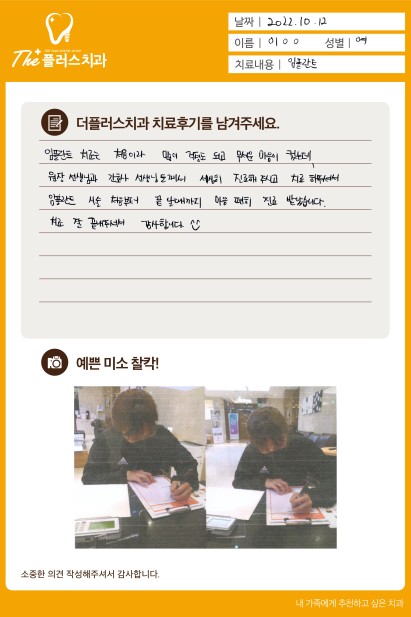 날짜 | 2022. 10. 12
이름 | 이 O O 성별 | 여
치료내용 | 임플란트
The 플러스치과
더플러스치과 치료후기를 남겨주세요.
임플란트 치료는 처음이라 많이 걱정도 되고 무서운 마음이 컸는데,
원장 선생님과 간호사 선생님들께서 세심히 진료해 주시고 치료 해주셔서
임플란트 시술 처음부터 끝날때까지 마음 편히 진료 받았습니다.
치료 잘 끝내주셔서 감사합니다
예쁜 미소 찰칵!
소중한 의견 작성해주셔서 감사합니다.
내 가족에게 추천하고 싶은 치과